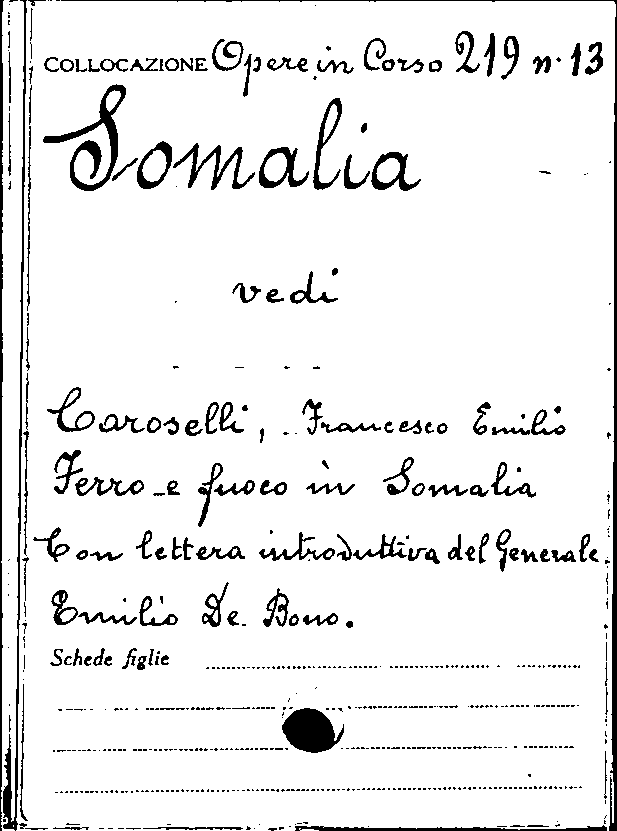 COLLOCAZIONE Opere in Corso 219 n. 13
Somalia
vedi
Caroselli, Francesco Emilio
Ferro e fuoco in Somalia
Con lettera introduttiva del Generale
Emilio De Bono.
Schede figlie